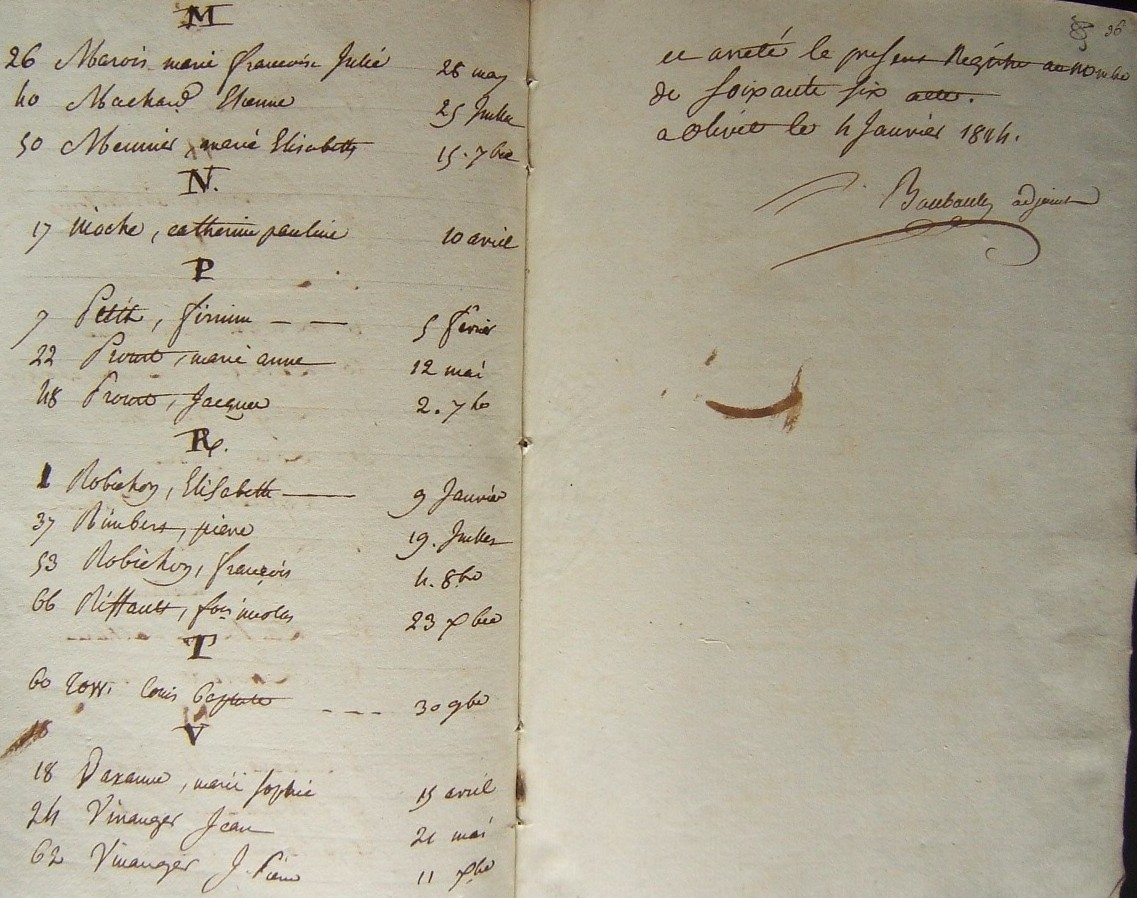 M
26 Marois marie françoise Julie 28 may
40 Machard Etienne 25 Juillet
50 Meunier, marie Elisabeth 15. 7bre
N.
17 Moche, catherine pauline 10 avril
P
7 Petit, firmin 5 fevrier
22 Prout, marie anne 12 mai
48 Prout, Jacques 2. 7bre
R.
1 Robichon, Elisabeth 9 Janvier
37 Rimbert, pierre 19. Juillet
53 Robichon, françois 4. 8bre
66 Riffault, fois nicolas 23 xbre
T
60 louis baptiste 30 9bre
V
18 marie sophie 15 avril
24 Vinauger Jean 21 mai
62 Vinauger J. Pierre 11 xbre
36
et areté le present Registre au nombre
de soixante six acte.
a olivet le 4 Janvier 1814.
adjoint